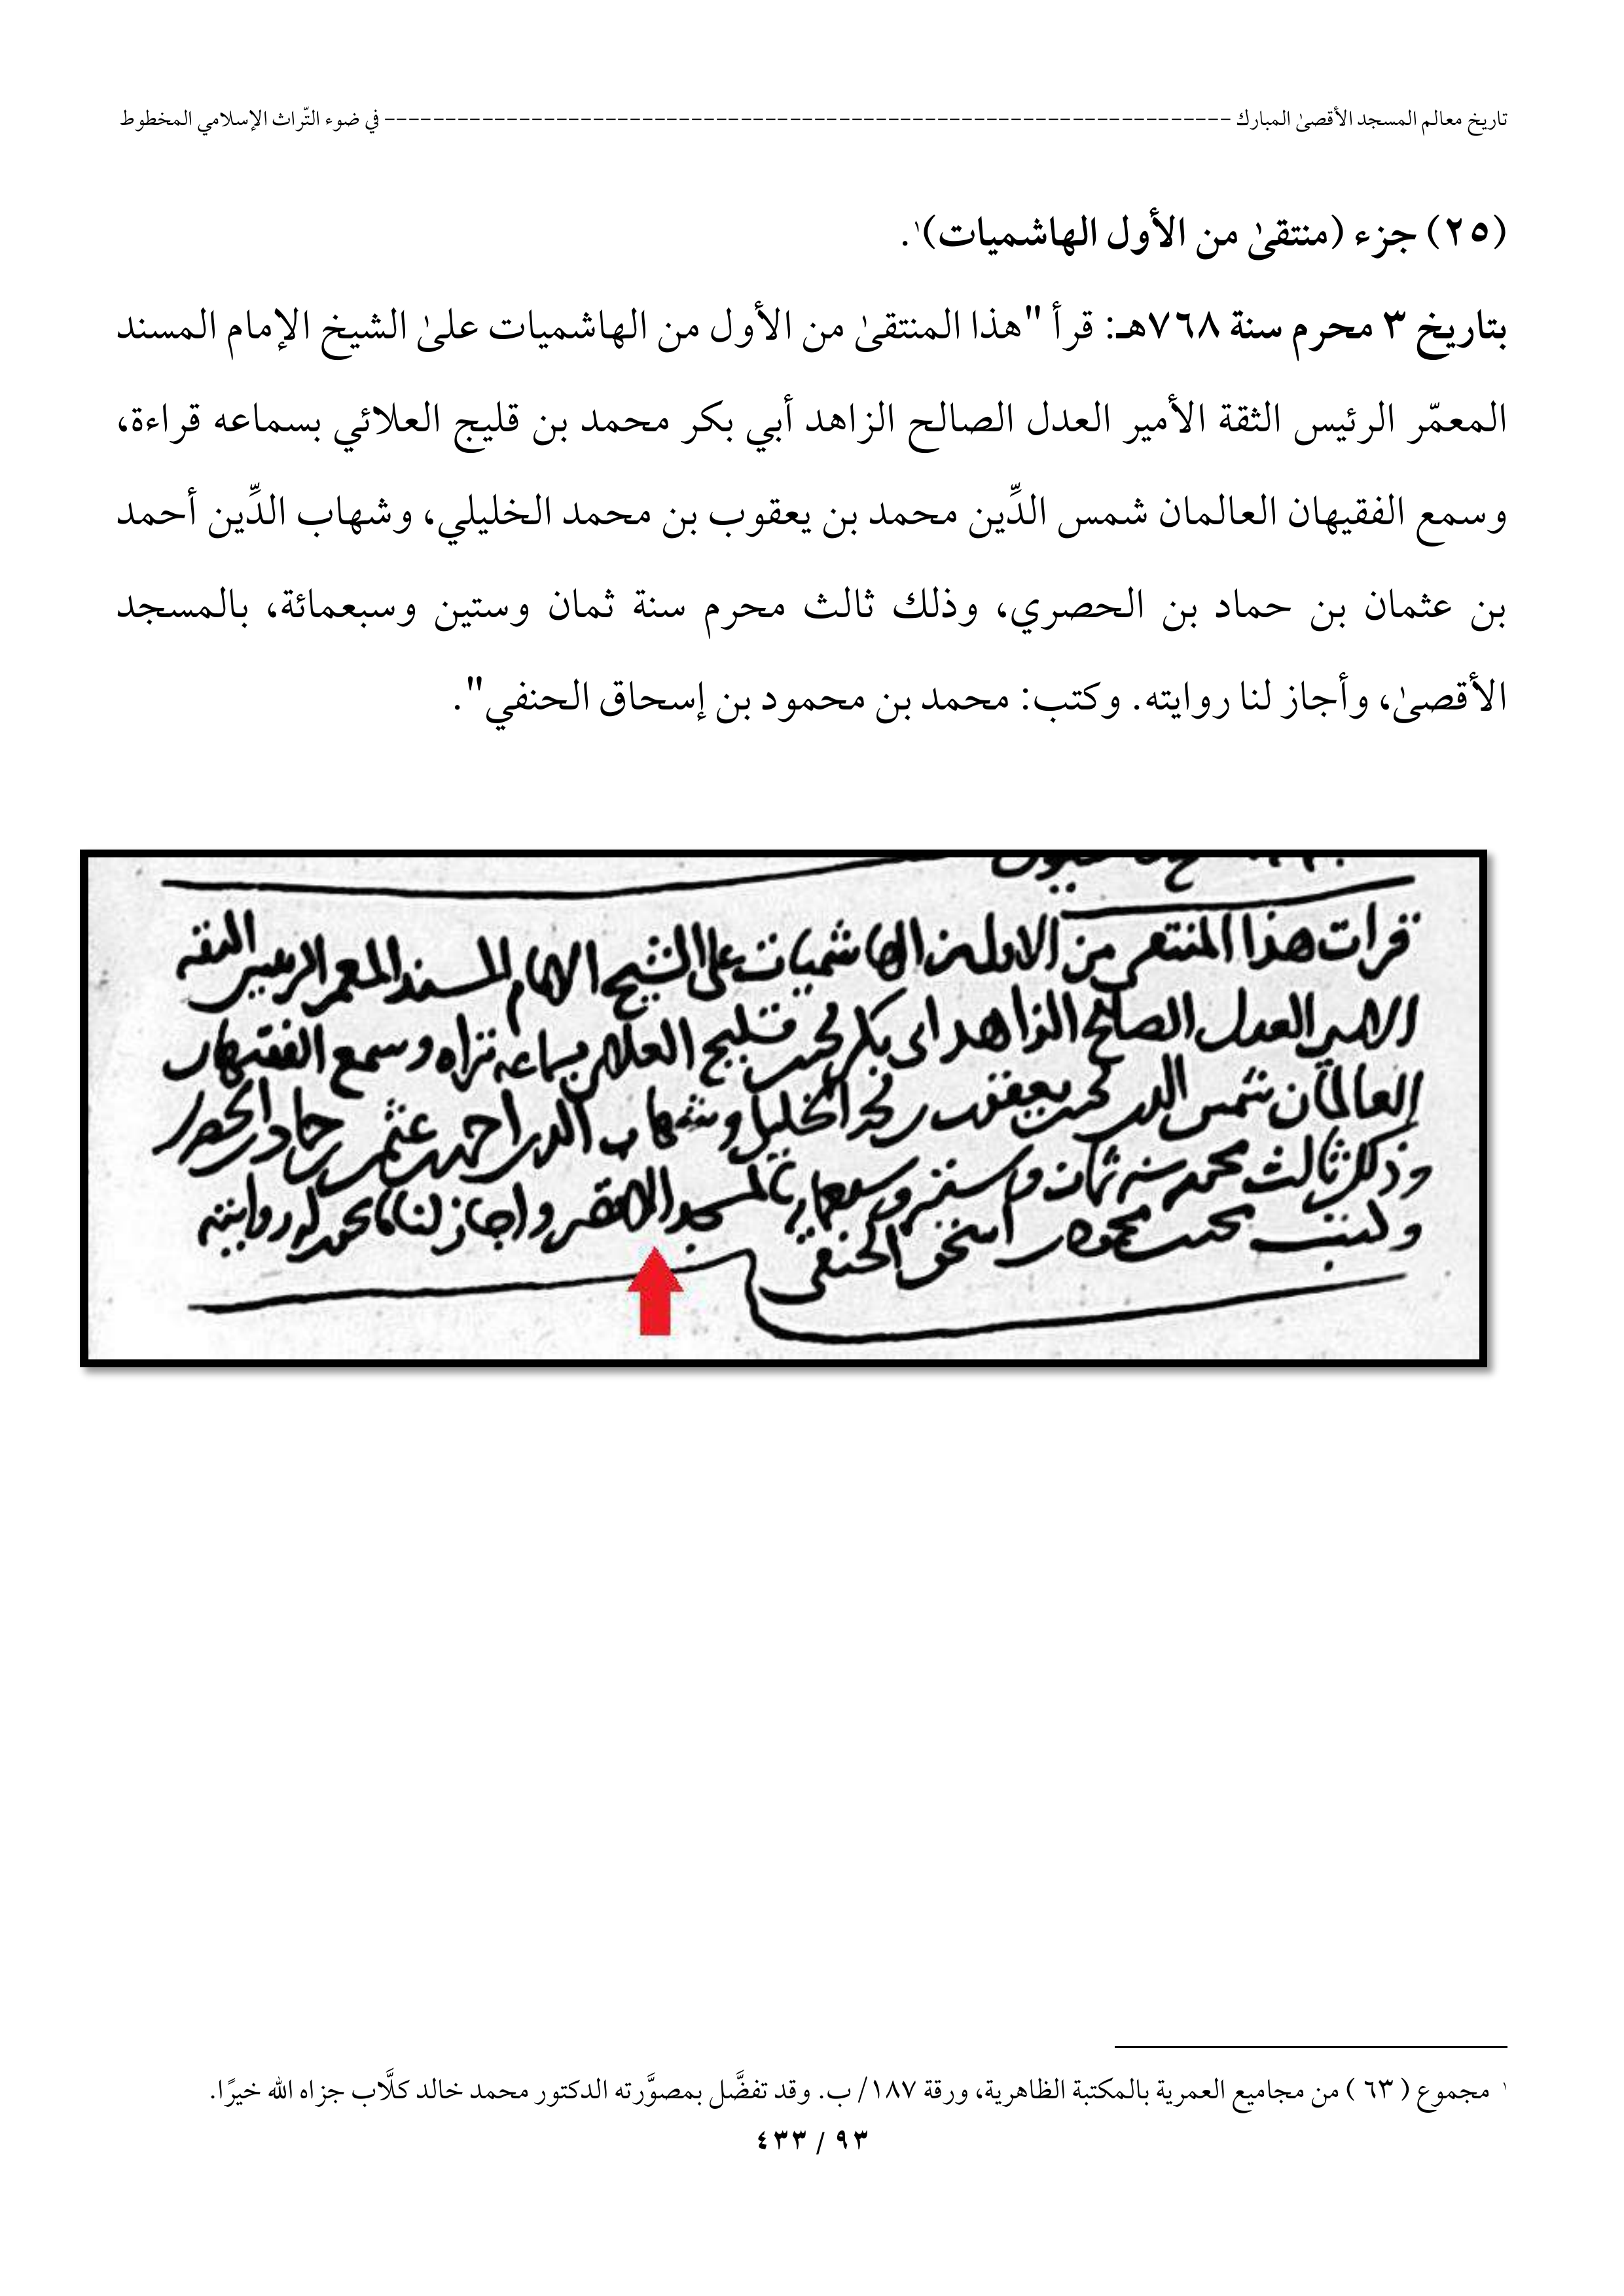 تاريخ معالم المسجد الأقصىٰ المبارك ---------------------------------------------------------------------- في ضوء التّراث الإسلامي المخطوط
(٢٥) جزء (منتقىٰ من الأول الهاشميات)١.
بتاريخ ٣ محرم سنة ٧٦٨هـ: قرأ "هذا المنتقىٰ من الأول من الهاشميات علىٰ الشيخ الإمام المسند
المعمّر الرئيس الثقة الأمير العدل الصالح الزاهد أبي بكر محمد بن قليج العلائي بسماعه قراءة،
وسمع الفقيهان العالمان شمس الدِّين محمد بن يعقوب بن محمد الخليلي، وشهاب الدِّين أحمد
بن عثمان بن حماد بن الحصري، وذلك ثالث محرم سنة ثمان وستين وسبعمائة، بالمسجد
الأقصىٰ، وأجاز لنا روايته. وكتب: محمد بن محمود بن إسحاق الحنفي".
قرات هذا المنتقى من الاول من الهاشميات على الشيخ الامام المسند المعمر الرييس الثقه
الامير العدل الصالح الزاهد ابى بكر محمد بن قليج العلائي بسماعه قراه وسمع الفقيهان
العالمان شمس الدين محمد بن يعقوب بن محمد الخليلي وشهاب الدين احمد بن عثمن بن حماد الحصري
وذلك ثالث محرم سنه ثمان وستين وسبعمايه بالمسجد الاقصى واجاز لنا روايته
وكتب محمد بن محمود بن اسحق الحنفي
١ مجموع (٦٣) من مجاميع العمرية بالمكتبة الظاهرية، ورقة ١٨٧/ ب. وقد تفضَّل بمصوَّرته الدكتور محمد خالد كلَّاب جزاه الله خيرًا.
٩٣ / ٤٣٣